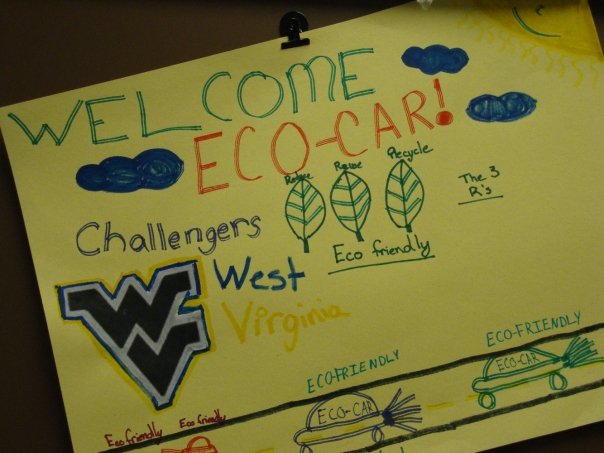 WELCOME
ECO-CAR!
Reduce Reuse Recycle
The 3
R's
Eco friendly
Challengers
West
Virginia
WV
ECO-FRIENDLY
ECO-CAR
ECO-FRIENDLY
ECO-CAR
Eco friendly Eco friendly